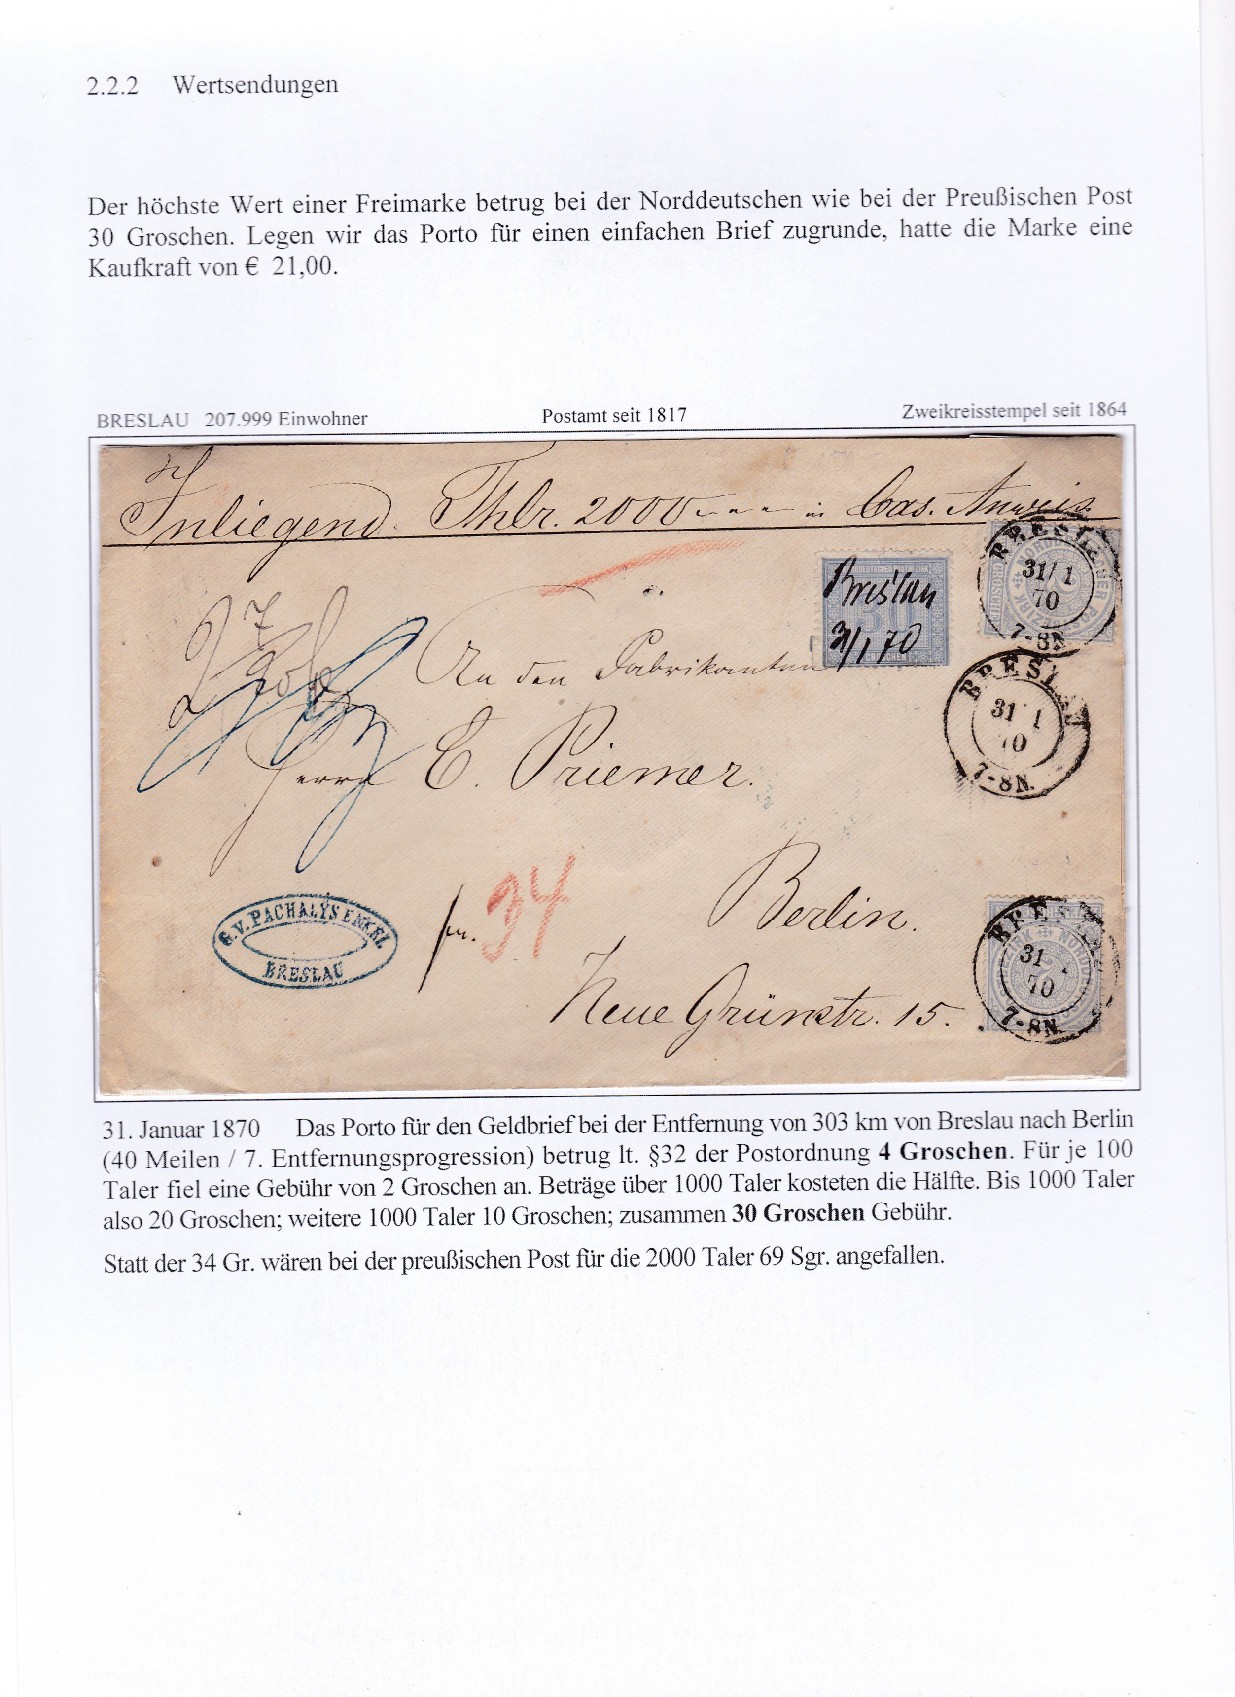 2.2.2 Wertsendungen
Der höchste Wert einer Freimarke betrug bei der Norddeutschen wie bei der Preußischen Post
30 Groschen. Legen wir das Porto für einen einfachen Brief zugrunde, hatte die Marke eine
Kaufkraft von € 21,00.
BRESLAU 207.999 Einwohner Postamt seit 1817 Zweikreisstempel seit 1864
Inliegend Thlr. 2000 in Cas. Anweis.
BRESLAU
31/1
70
7-8N
Breslau
31/1 70
An den Fabrikanten
BRESLAU
31 1
70
7-8N.
Herrn E. Priemer.
34
Berlin.
G. V. PACHALY'S ENKEL
BRESLAU
BRESLAU
31
70
7-8N
Neue Grünstr. 15.
31. Januar 1870 Das Porto für den Geldbrief bei der Entfernung von 303 km von Breslau nach Berlin
(40 Meilen / 7. Entfernungsprogression) betrug lt. §32 der Postordnung 4 Groschen. Für je 100
Taler fiel eine Gebühr von 2 Groschen an. Beträge über 1000 Taler kosteten die Hälfte. Bis 1000 Taler
also 20 Groschen; weitere 1000 Taler 10 Groschen; zusammen 30 Groschen Gebühr.
Statt der 34 Gr. wären bei der preußischen Post für die 2000 Taler 69 Sgr. angefallen.